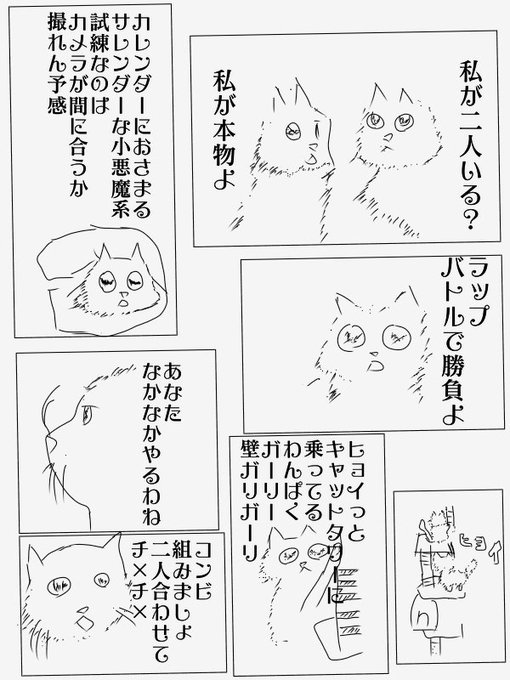 私が二人いる？
私が本物よ
ラップ
バトルで勝負よ
ヒヨイ
ヒョイっと
キャットタワーに
乗ってる
わんぱく
ガーリー
壁ガリガーリ
カレンダーにおさまる
サレンダーな小悪魔系
試練なのは
カメラが間に合うか
撮れん予感
あなた
なかなかやるわね
コンビ
組みましょ
二人合わせて
チ×チ×